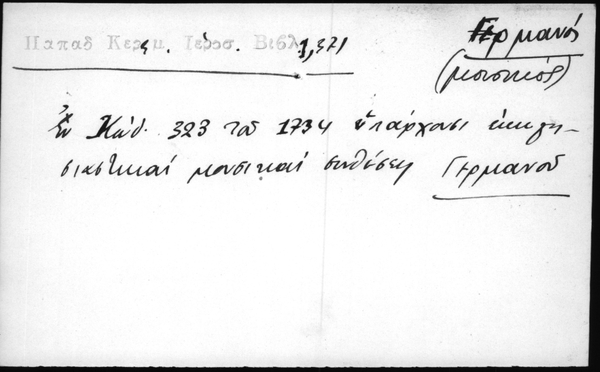 Παπαδ Κεραμ. Ιεροσ. Βιβλ. 1,371
Γερμανός
(μουσικός)
Ἐν Κώδ. 323 τοῦ 1734 ὑπάρχουσι ἐκκλη-
σιαστικαί μουσικαί συνθέσεις Γερμανοῦ